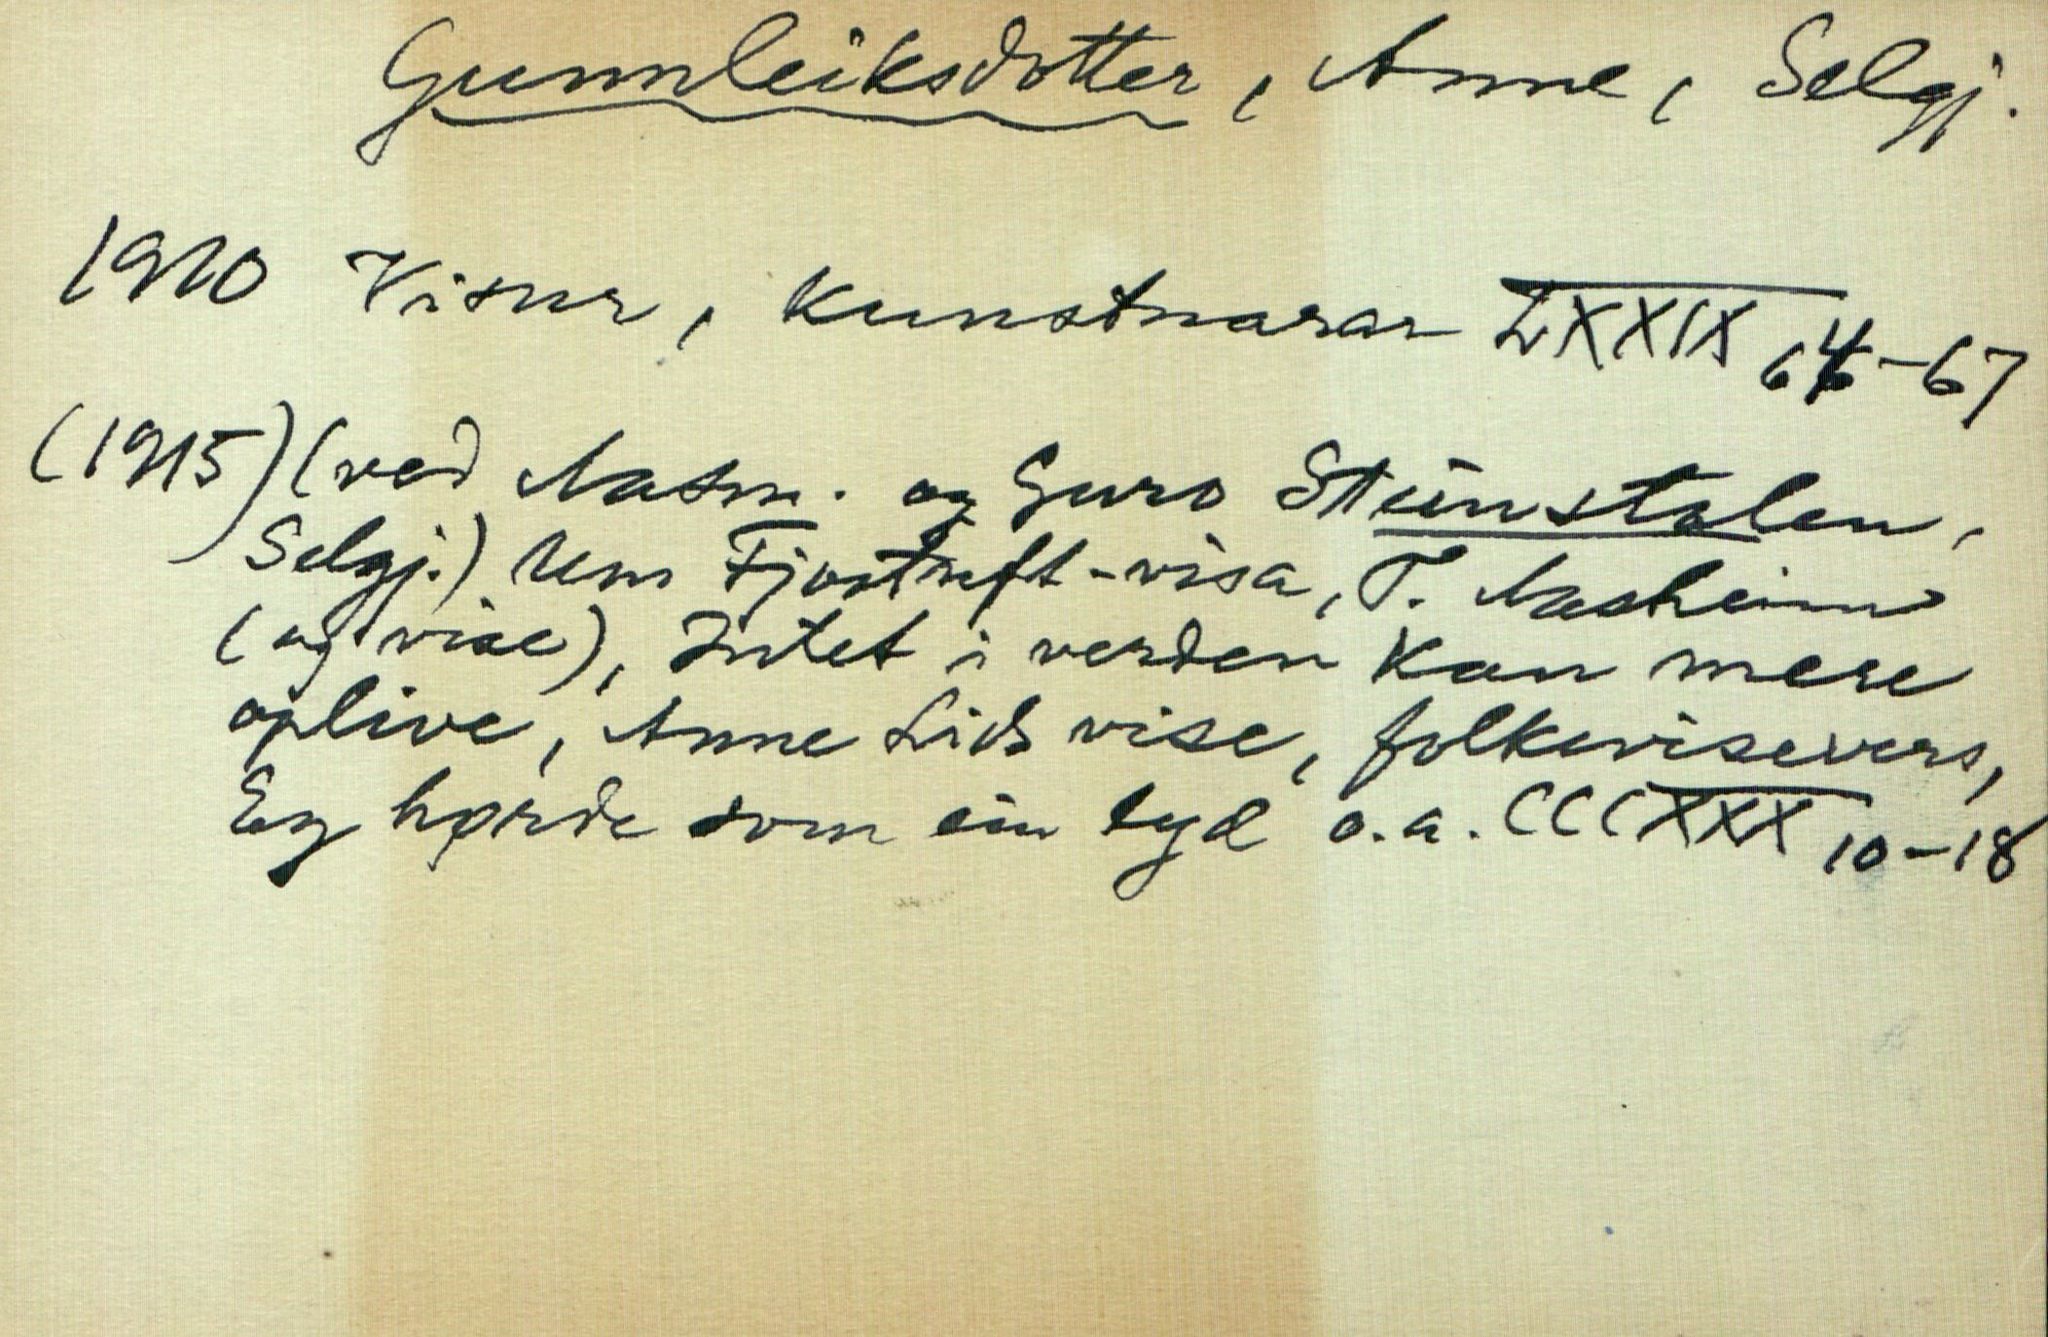 Gunnleiksdotter, Anne, Selgj.
1910 Visur, kunstnarar LXXXIX 64-67
(1915) (ved Aasm. og Guro Steinstalen,
Selgj.) Um Fjostuft-visa, T. Aasheim
(og vise), Intet i verden kan mere
oplive, Anne Lids vise, folkevisevers,
Eg hørde som ein lyd o.a. CCCXXX 10-18